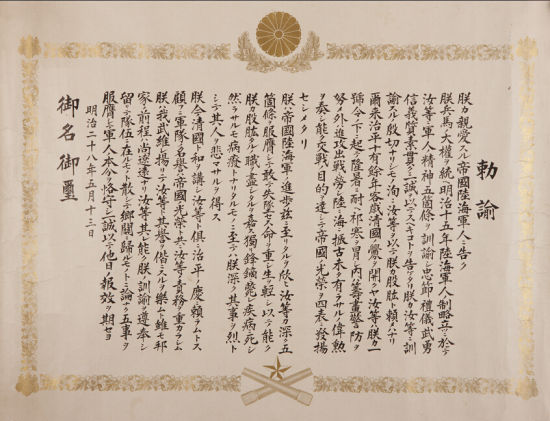 勅諭
朕カ親愛ナル帝國陸海軍人ニ告ク
朕兵馬ノ大權ヲ統ヘ明治十五年陸海軍人ノ制略立ツニ於テ
汝等軍人ノ精神五箇條ヲ訓諭シ忠節禮儀武勇
信義質素貫クニ一誠ヲ以テスヘキコトヲ告ケタリ朕カ汝等ニ訓
諭スルノ殷切ナリシモノ洵ニ汝等ヲ以テ朕カ股肱ト頼メハナリ
爾来治平十有餘年客歳清國ト釁ヲ開クヤ汝等朕カ一
號令ノ下ニ起チ隆暑ニ耐ヘ祁寒ヲ冒シ内ハ籌畫警防ヲ
努メ外ハ進攻出戰ニ勞シ陸ニ海ニ振古未タ有ラサルノ偉勲
ヲ奏シ能ク交戰ノ目的ヲ達シテ帝國ノ光榮ヲ四表ニ發揚
セシメタリ
朕ハ帝國陸海軍ノ進歩茲ニ至リタルヲ欣ヒ汝等カ深ク五
箇條ヲ服膺シテ敢テ失墜セス命ヲ重シ生ヲ輕シ以テ能ク
朕カ股肱タルノ職ヲ盡シタルヲ嘉ス獨リ鋒鏑ニ斃レ疾病ニ死シ
然ラサルモ癈痼トナリタルモノニ至テハ朕深ク其事ヲ烈ト
シテ其人ヲ悲マサルヲ得ス
朕今清國ト和ヲ講シ汝等ト俱ニ治平ノ慶ニ頼ラムトス
顧フニ軍隊ノ名譽帝國ノ光榮ハ共ニ汝等ノ責務ヲ重カラシム
朕ハ我武維レ揚リテ汝等ト其譽ヲ偕ニスルヲ樂ム ト雖モ邦
家ノ前程ハ尚遼遠ナリ汝等其レ能ク朕カ訓諭ニ遵ヒ
留テ隊伍ニ在ルモノト散シテ郷閭ニ歸ルモノトヲ論セス五事ヲ
服膺シ軍人ノ本分ヲ恪守シ一誠以テ他日ノ報效ヲ期セヨ
明治二十八年五月十三日
御名御璽